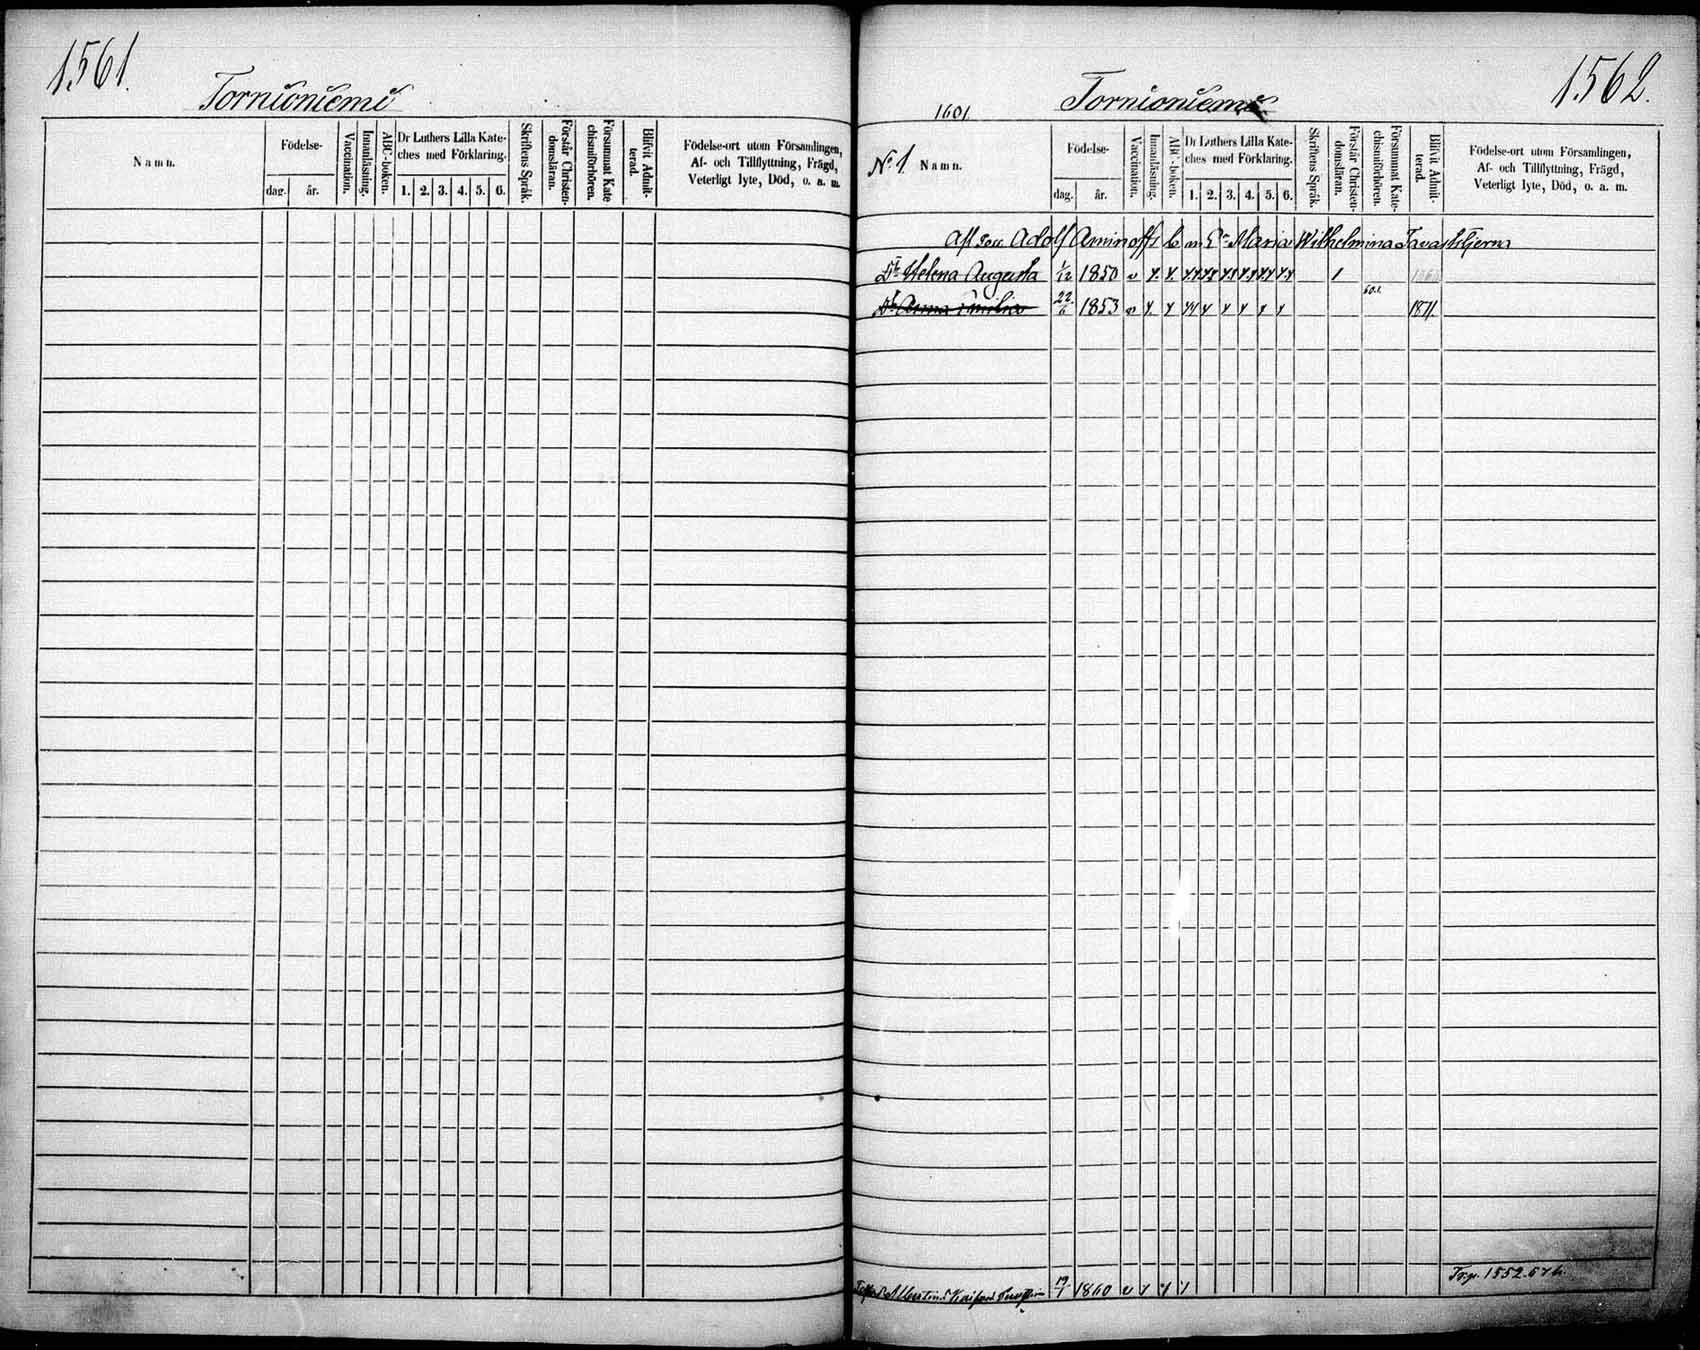 1561.
Tornioniemi
Namn.
Födelse-
dag. år.
Vaccination.
Innanläsning.
ABC-boken.
Dr Luthers Lilla Kate-
ches med Förklaring.
1. 2. 3. 4. 5. 6.
Skriftens Språk.
Förstår Christen-
domsläran.
Försummat Kate
chismiförhören.
Blifvit Admit-
terad.
Födelse-ort utom Församlingen,
Af- och Tillflyttning, Frägd,
Veterligt lyte, Död, o. a. m.
1562.
1601.
Tornioniemi
No 1. Namn.
Födelse-
dag. år.
Vaccination.
Innanläsning.
ABC-boken.
Dr Luthers Lilla Kate-
ches med Förklaring.
1. 2. 3. 4. 5. 6.
Skriftens Språk.
Förstår Christen-
domsläran.
Försummat Kate-
chismiförhören.
Blifvit Admit-
terad.
Födelse-ort utom Församlingen,
Af- och Tillflyttning, Frägd,
Veterligt lyte, Död, o. a. m.
Adolf Aminoffs Maria Wilhelmina Tavaststjerna
Dr Helena Augusta 1/12 1850 v
Dr Anna Emilia 22/6 1853 v 60.1. 1871.
19/7 1860 v
Trp. 1552.